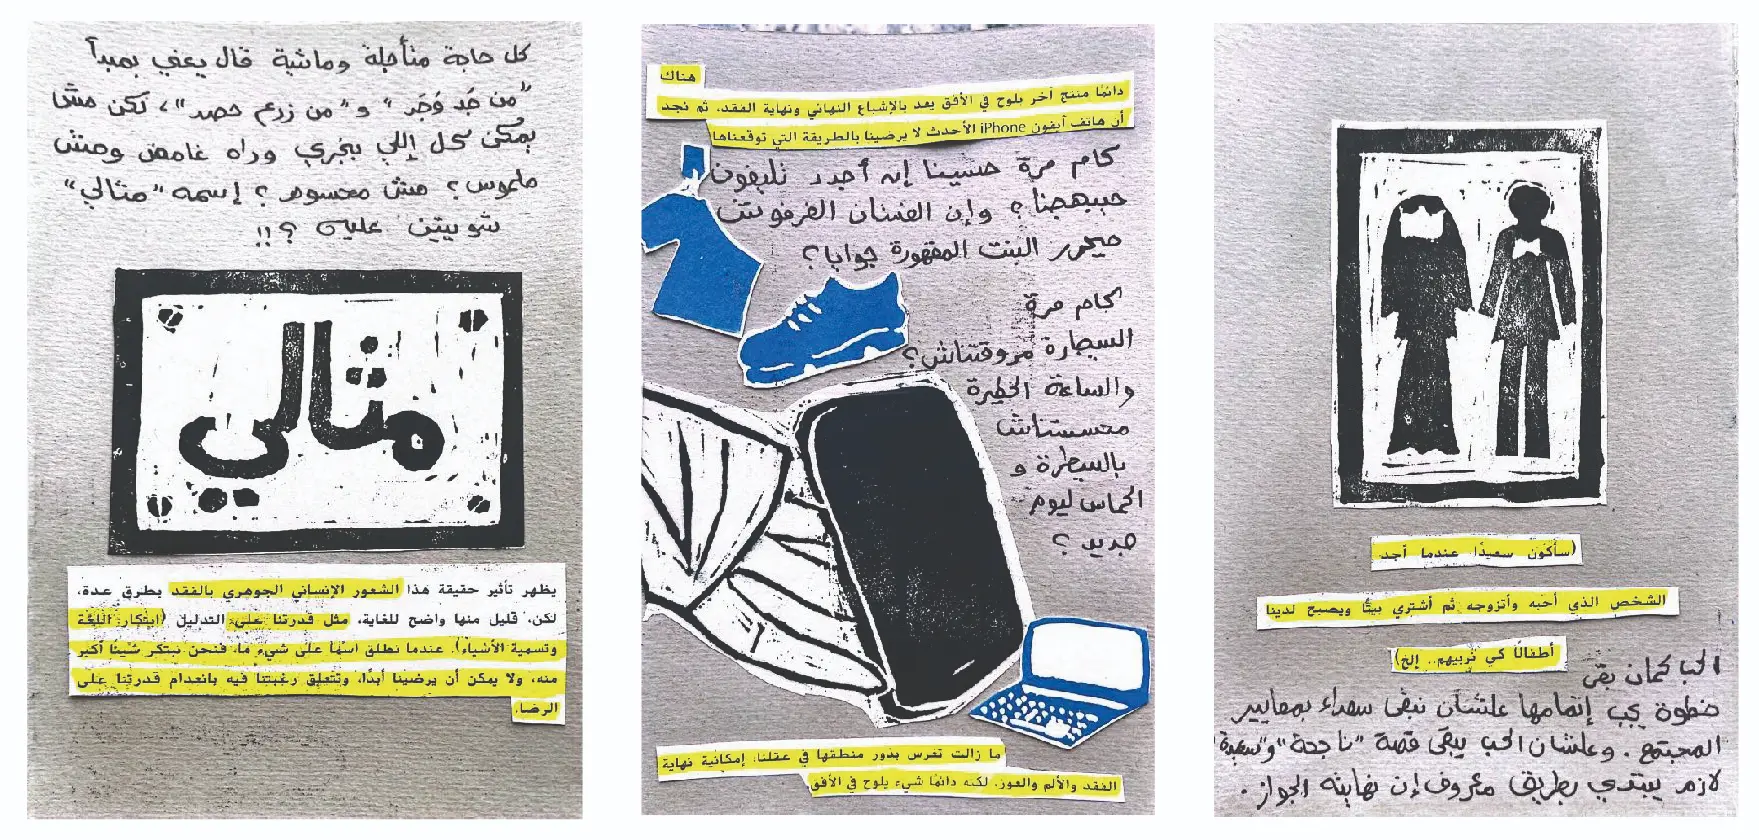 كل حاجة متأجلة وماشية قال يعني بمبدأ
"من جَد وَجَد" و"من زرع حصد"، لكن مش
يمكن كل إللي بيجري وراه غامض ومش
ملموس؟ مش محسوم؟ إسمه "مثالي"
شوييتين عليه؟!!
مثالي
يظهر تأثير حقيقة هذا الشعور الإنساني الجوهري بالفقد بطرق عدة،
لكن، قليل منها واضح للغاية، مثل قدرتنا على، التدليل (ابتكار اللغة
وتسمية الأشياء). عندما نطلق اسمًا على شيء ما، فنحن نبتكر شيئًا أكبر
منه، ولا يمكن أن يرضينا أبدًا، وتتعلق رغبتنا فيه بانعدام قدرتنا على
الرضا.
هناك
دائمًا منتج آخر يلوح في الأفق يعد بالإشباع النهائي ونهاية الفقد، ثم نجد
أن هاتف آيفون iPhone الأحدث لا يرضينا بالطريقة التي توقعناها
كام مرة حسينا إن أجدد تليفون
حيبهجنا؟ وإن الفستان
حيحرر البنت المقهورة جوايا؟
كام مرة
السيجارة مروقتناش؟
والساعة الخطيرة
محسستناش
بالسيطرة و
الحماس ليوم
جديد؟
ما زالت تغرس بذور منطقها في عقلنا، إمكانية نهاية
الفقد والألم والعوز، لكنه دائمًا شيء يلوح في الأفق
(سأكون سعيدًا عندما أجد
الشخص الذي أحبه وأتزوجه ثم أشتري بيتًا ويصبح لدينا
أطفالًا كي نربيهم.. إلخ)
الحب كمان بقى
خطوة يجب إتمامها علشان نبقى سعداء بمعايير
المجتمع. وعلشان الحب يبقى قصة "ناجحة" و"سعيدة"
لازم يبتدي بطريق معروف إن نهايته الجواز.